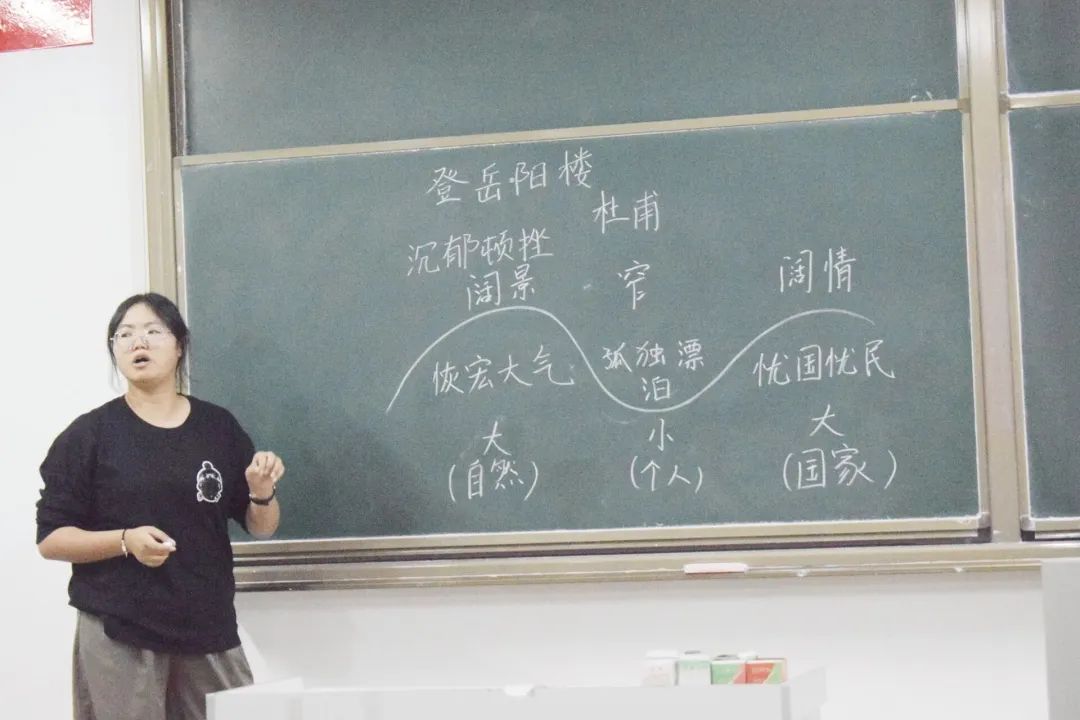 登岳阳楼
杜甫
沉郁顿挫
阔景 窄 阔情
恢宏大气 孤独漂泊 忧国忧民
大 小 大
(自然) (个人) (国家)